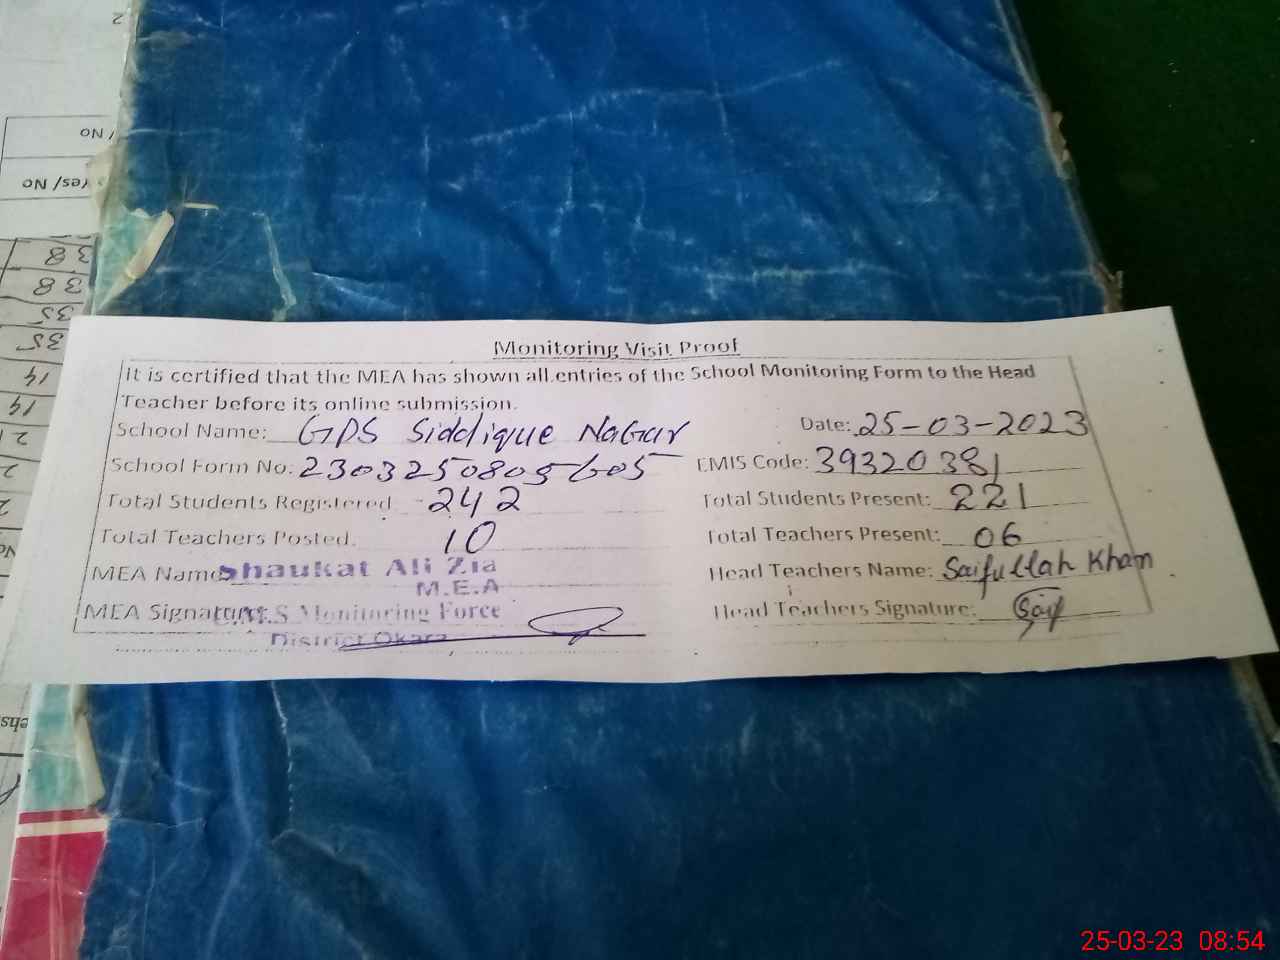 Monitoring Visit Proof
It is certified that the MEA has shown all entries of the School Monitoring Form to the Head
Teacher before its online submission.
School Name: GPS Siddique NaGar Date: 25-03-2023
School Form No: 2303250805605 EMIS Code: 39320381
Total Students Registered 242 Total Students Present: 221
Total Teachers Posted. 10 Total Teachers Present: 06
MEA Name Shaukat Ali Zia Head Teachers Name: Saifullah Kham
M.E.A
MEA Signature: Monitoring Force Head Teachers Signature: Saif
District Okara
/ No
Yes/ No
38
38
35
35
14
14
2
25-03-23 08:54